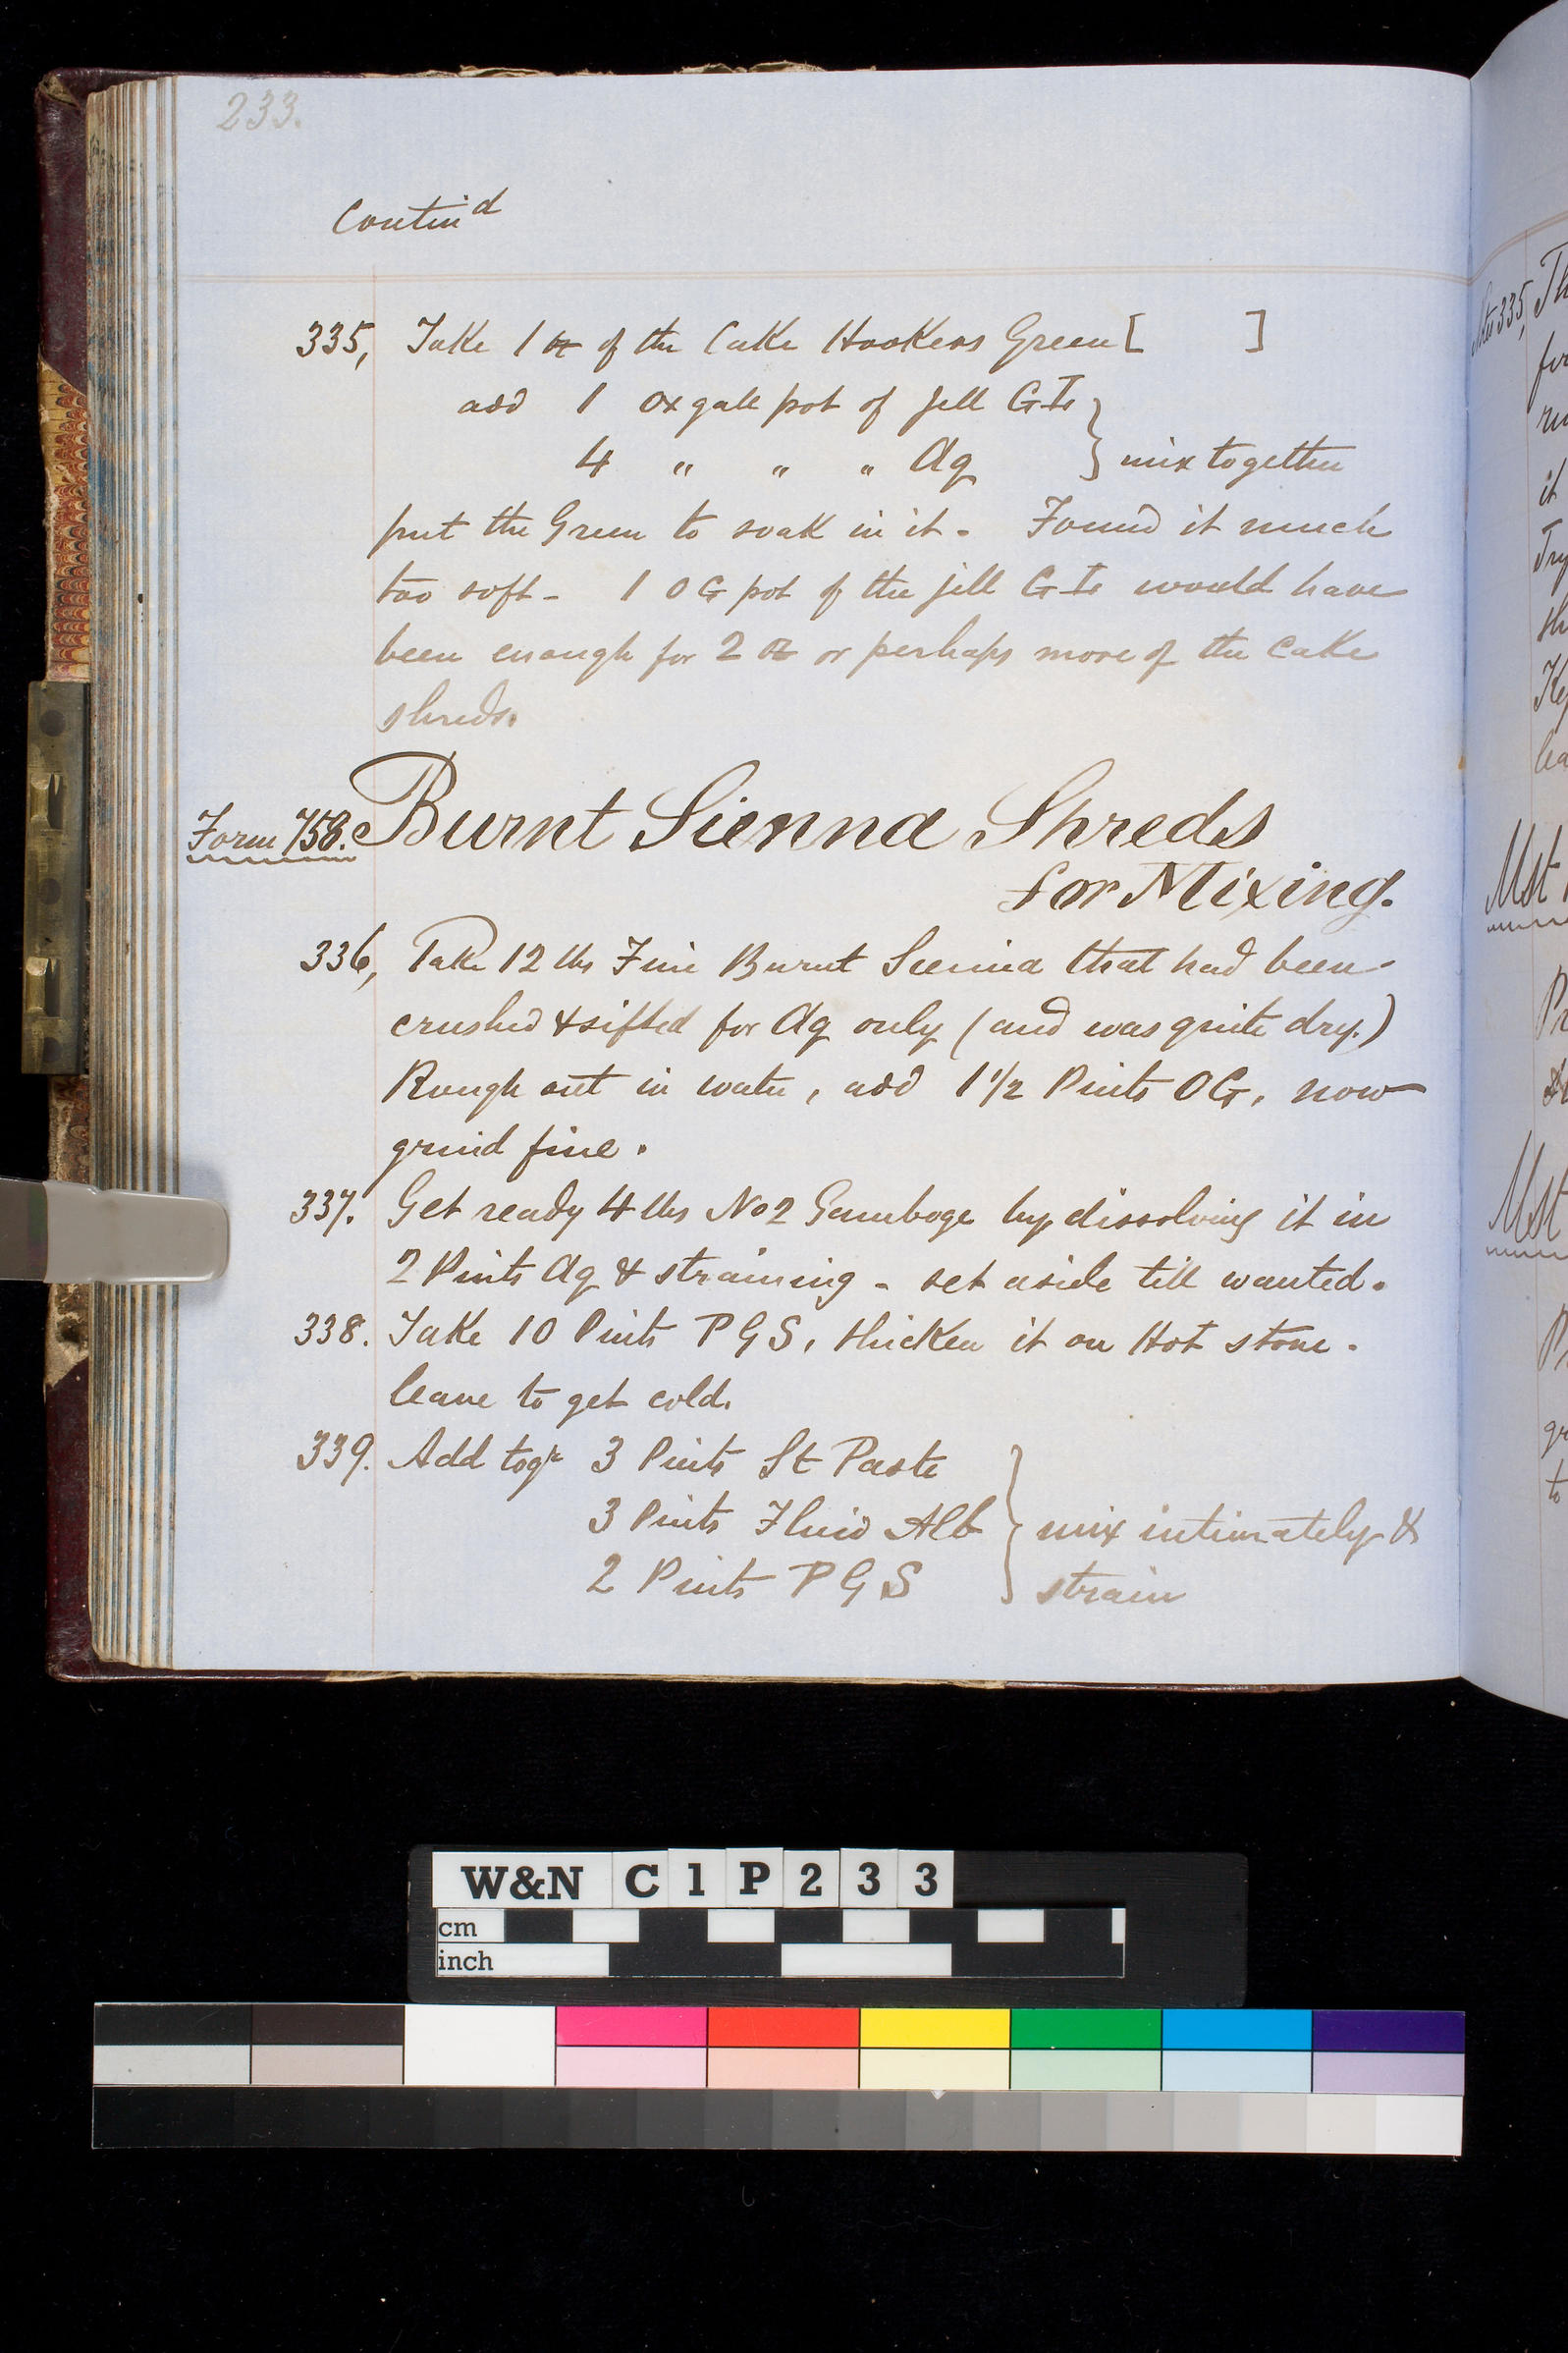 233.
Contin'd
335, Take 1 oz of the Cake Hookers Green [ ]
add 1 oxgall pot of jell G Tr } mix together
4 " " " Aq
put the Green to soak in it - Found it much
too soft - 1 OG pot of the jell G Tr would have
been enough for 2 oz or perhaps more of the Cake
shreds.
Form 758. Burnt Sienna Shreds
for Mixing.
336, Take 12 lbs Fine Burnt Sienna that had been
crushed & sifted for Aq only (and was quite dry.)
Rough out in water, add 1 1/2 Pints OG, now
grind fine.
337. Get ready 4 lbs No 2 Gamboge by dissolving it in
2 Pints Aq & straining - set aside till wanted.
338. Take 10 Pints PGS, thicken it on Hot stone.
leave to get cold.
339. Add togr 3 Pints St Paste
3 Pints Fluid Alb } mix intimately &
2 Pints PGS strain
335,
Mst
Mst
W&N C1P233
cm
inch